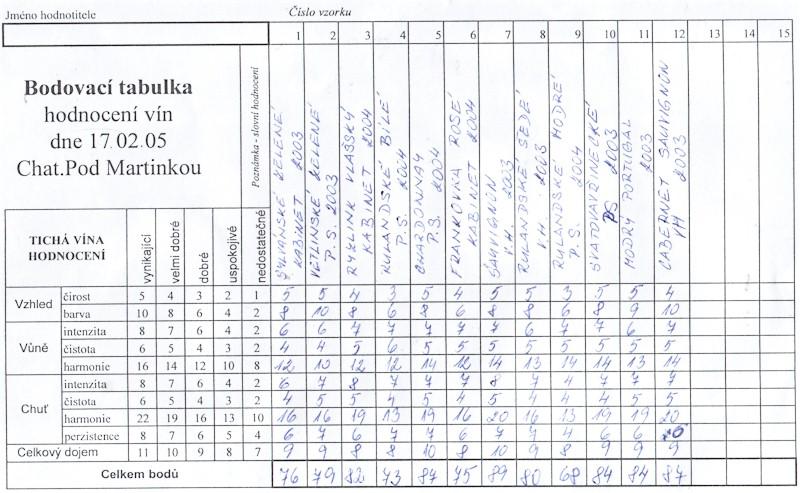 Jméno hodnotitele
Číslo vzorku
1 2 3 4 5 6 7 8 9 10 11 12 13 14 15
Bodovací tabulka
hodnocení vín
dne 17.02.05
Chat.Pod Martinkou
Poznámka - slovní hodnocení
SYLVÁNSKÉ ZELENÉ
KABINET 2003
VETLÍNSKÉ ZELENÉ
P.S. 2003
RYZLINK VLAŠSKÝ
KABINET 2004
RULANDSKÉ BÍLÉ
P.S. 2004
CHARDONNAY
P.S. 2004
FRANKOVKA ROSÉ
KABINET 2004
SAUVIGNON
V.H. 2003
RULANDSKÉ ŠEDÉ
V.H. 2003
RULANDSKÉ MODRÉ
P.S. 2004
SVATOVAVŘINECKÉ
PS 2003
MODRÝ PORTUGAL
2003
CABERNET SAUVIGNON
VH 2003
TICHÁ VÍNA
HODNOCENÍ
vynikající
velmi dobré
dobré
uspokojivé
nedostatečné
Vzhled
čirost 5 4 3 2 1 5 5 4 3 5 4 5 5 3 5 5 4
barva 10 8 6 4 2 8 10 8 6 8 6 8 8 6 8 9 10
Vůně
intenzita 8 7 6 4 2 6 6 7 7 7 7 7 6 7 7 6 7
čistota 6 5 4 3 2 4 4 5 6 5 5 5 5 5 5 5 5
harmonie 16 14 12 10 8 12 10 12 12 14 12 14 13 14 14 13 14
Chuť
intenzita 8 7 6 4 2 6 7 8 7 7 7 8 7 4 7 7 7
čistota 6 5 4 3 2 4 5 5 4 5 4 5 4 4 4 5 5
harmonie 22 19 16 13 10 16 16 19 13 19 16 20 16 13 19 19 20
perzistence 8 7 6 5 4 6 7 6 7 7 6 7 7 4 6 6 6
Celkový dojem 11 10 9 8 7 9 9 8 8 10 8 10 9 8 9 9 9
Celkem bodů 76 79 82 73 87 75 89 80 68 84 84 87